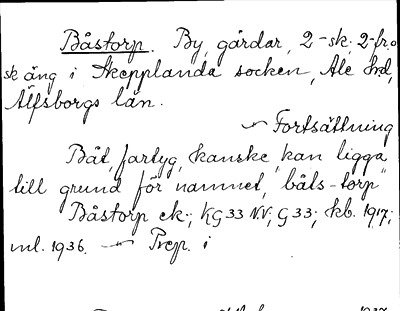 Båstorp. By, gårdar, 2-sk. 2-fr.o
sk äng i Skepplanda socken, Ale hd,
Älfsborgs län.
Fortsättning
Båt, fartyg, kanske, kan ligga
till grund för namnet, "båts-torp"
Båstorp ek.; KG 33 N.V, G 33; kb. 1917;
ml. 1936. Prep. i